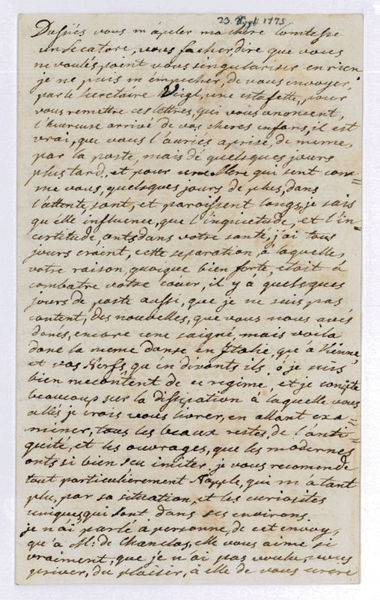 23. Sept. 1775.
Dussiés vous m'apeler ma chere Comtesse
indicatore, vous facher, dire que vous
ne voulés point vous singulariser en rien
je ne puis m'empecher, de vous envoyer,
par le Secretaire une estafette, pour
vous remettre ces lettres, qui vous anoncent,
l'heureuse arrivé de vos cheres enfans, il est
vrai, que vous l'auriés aprise, de meme,
par la poste, mais de quelques jours
plus tard, et pour une Mere qui sent com=
me vous, quelques jours de plus, dans
l'attente, sont, et paroissent longs, je sais
qu'elle influence, que l'inquietude, et l'in=
certitude, onts, dans votre santé, j'ai tous
jours craint, cette separation, à laquelle,
votre raison, quoique bien forte, étoit à
combatre votre coeur, il y a quelques
jours de poste aussi, que je ne suis pas
content, des nouvelles, que vous nous avés
donés, encore une saigné, mais voila
donc la meme danse en Italie, qu'à Vienne,
et vos Nerfs, qu'en dironts ils, o je suis
bien mecontent de ce regime, et je compte
beaucoup sur la dissipation à laquelle vous
allés je crois vous livrer, en allant exa=
miner, tous les beaux restes, de l'anti=
quité, et les ouvrages, que les modernes
onts si bien seu imiter, je vous recomende
tout particulierement Naple, qui m'a tant
plu, par sa situation, et les curiosités
uniques qui sont dans ses environs.
je n'ai parlé a personne, de cet envoy,
qu'à M: de Chanclos, elle vous aime si
vraiment, que je n'ai pas voulu, vous
priver, du plaisir, à elle de vous ecrire